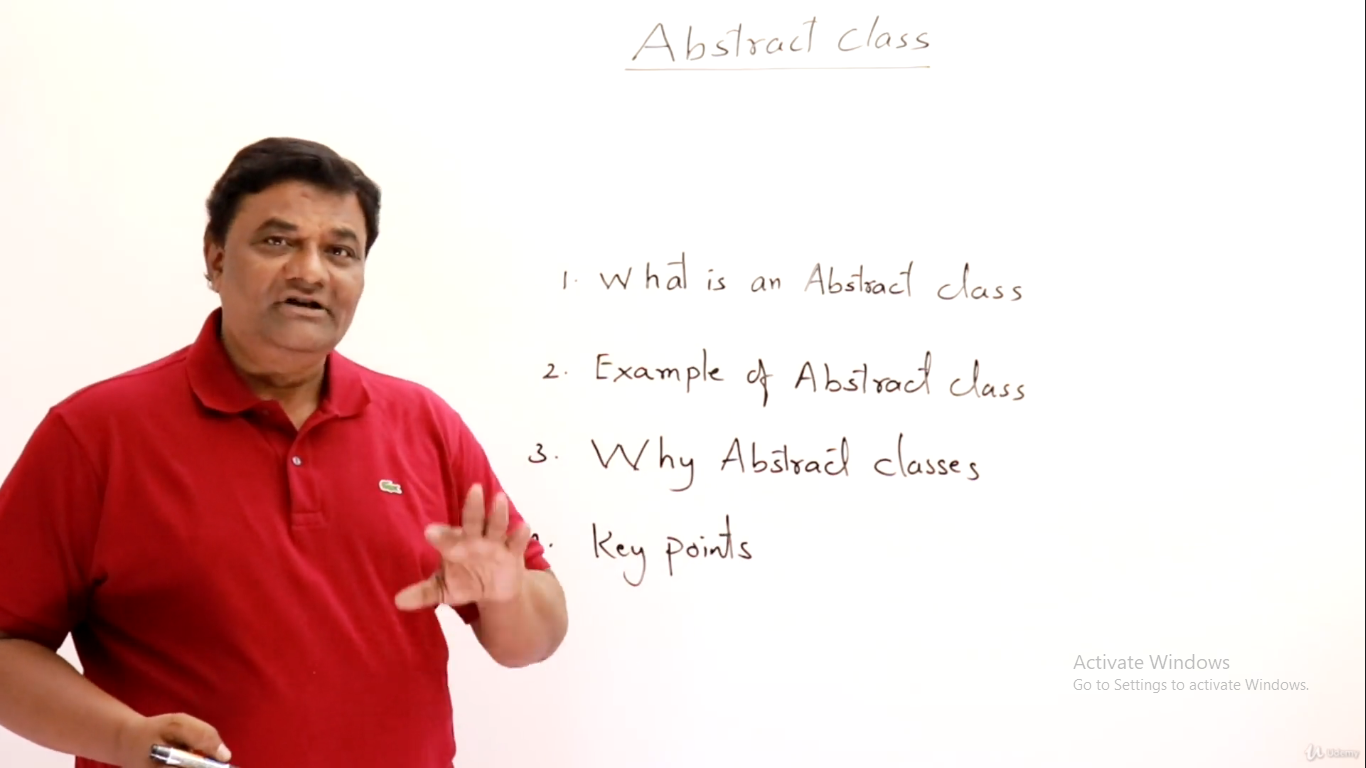 Abstract class
1. What is an Abstract class
2. Example of Abstract class
3. Why Abstract classes
Key points
Activate Windows
Go to Settings to activate Windows.
Udemy